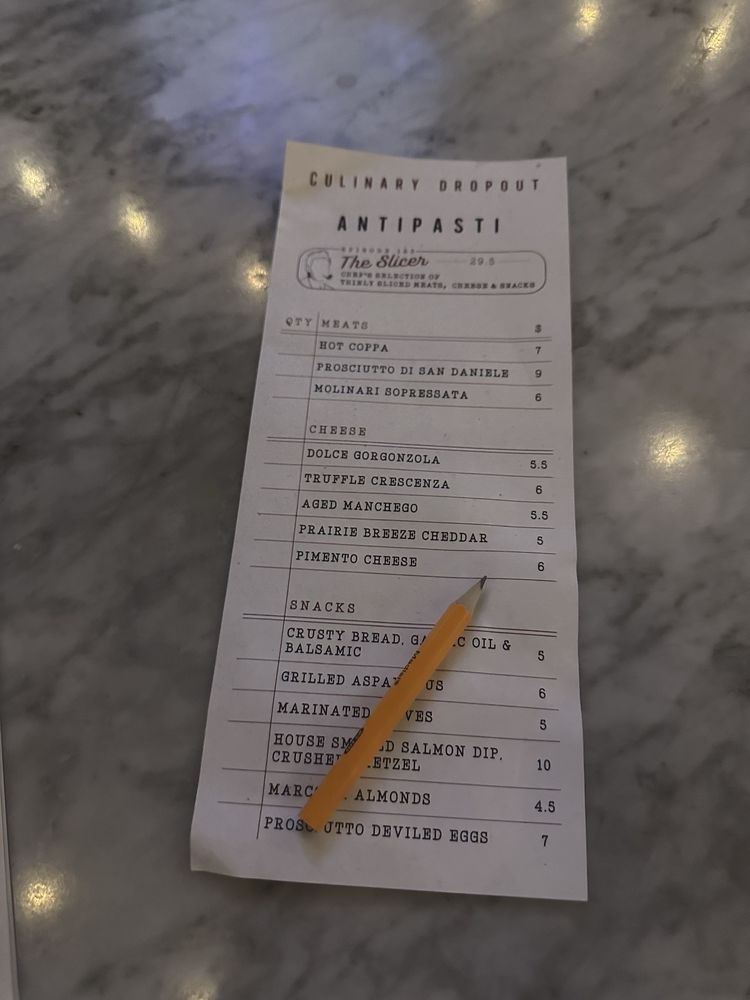 CULINARY DROPOUT
ANTIPASTI
The Slicer 29.5
CHEF'S SELECTION OF
THINLY SLICED MEATS, CHEESE & SNACKS
QTY MEATS $
HOT COPPA 7
PROSCIUTTO DI SAN DANIELE 9
MOLINARI SOPRESSATA 6
CHEESE
DOLCE GORGONZOLA 5.5
TRUFFLE CRESCENZA 6
AGED MANCHEGO 5.5
PRAIRIE BREEZE CHEDDAR 5
PIMENTO CHEESE 6
SNACKS
CRUSTY BREAD, OIL &
BALSAMIC 5
GRILLED 6
MARINATED 5
HOUSE SALMON DIP,
10
ALMONDS 4.5
PROSCIUTTO DEVILED EGGS 7